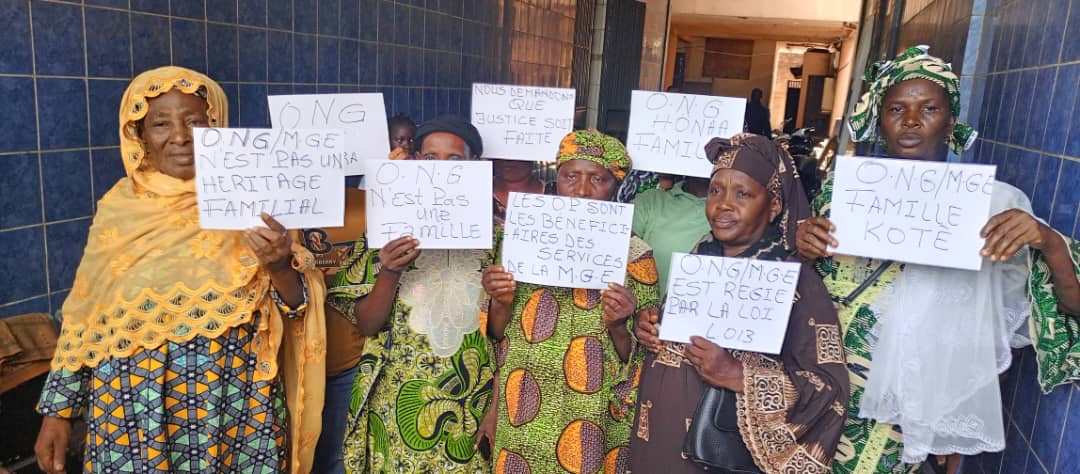 O.N.G/MGE
N'EST PAS UN
HERITAGE
FAMILIAL
ONG
O.N.G
N'EST PAS
une
FAMILLE
NOUS DEMANDONS
QUE
JUSTICE SOIT
FAITE
LES OP SONT
LES BENEFICI-
AIRES DES
SERVICES
DE LA M.G.E
O.N.G
HONAA
FAMILL
O.NG/MGE
EST REGIE
PAR LA LOI
LOI3
O.N.G/MGE
FAMILLE
KOTÈ